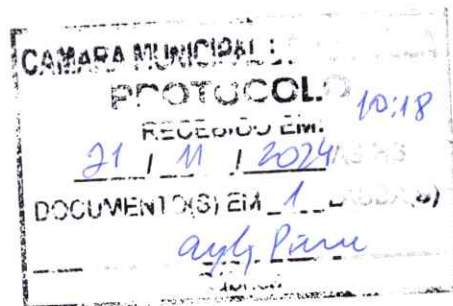 CAMARA MUNICIPAL :
PROTOCOLO 10:18
RECEBIDO EM:
21 / 11 / 2024
DOCUMENTO(S) EM 1